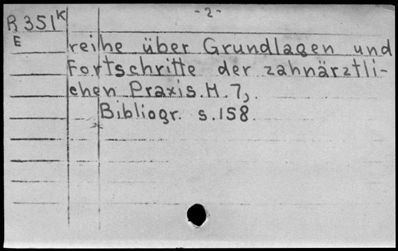 - 2 -
R 351 K
E
reihe über Grundlagen und
Fortschritte der zahnärztli-
chen Praxis. H. 7,.
Bibliogr. s. 158.